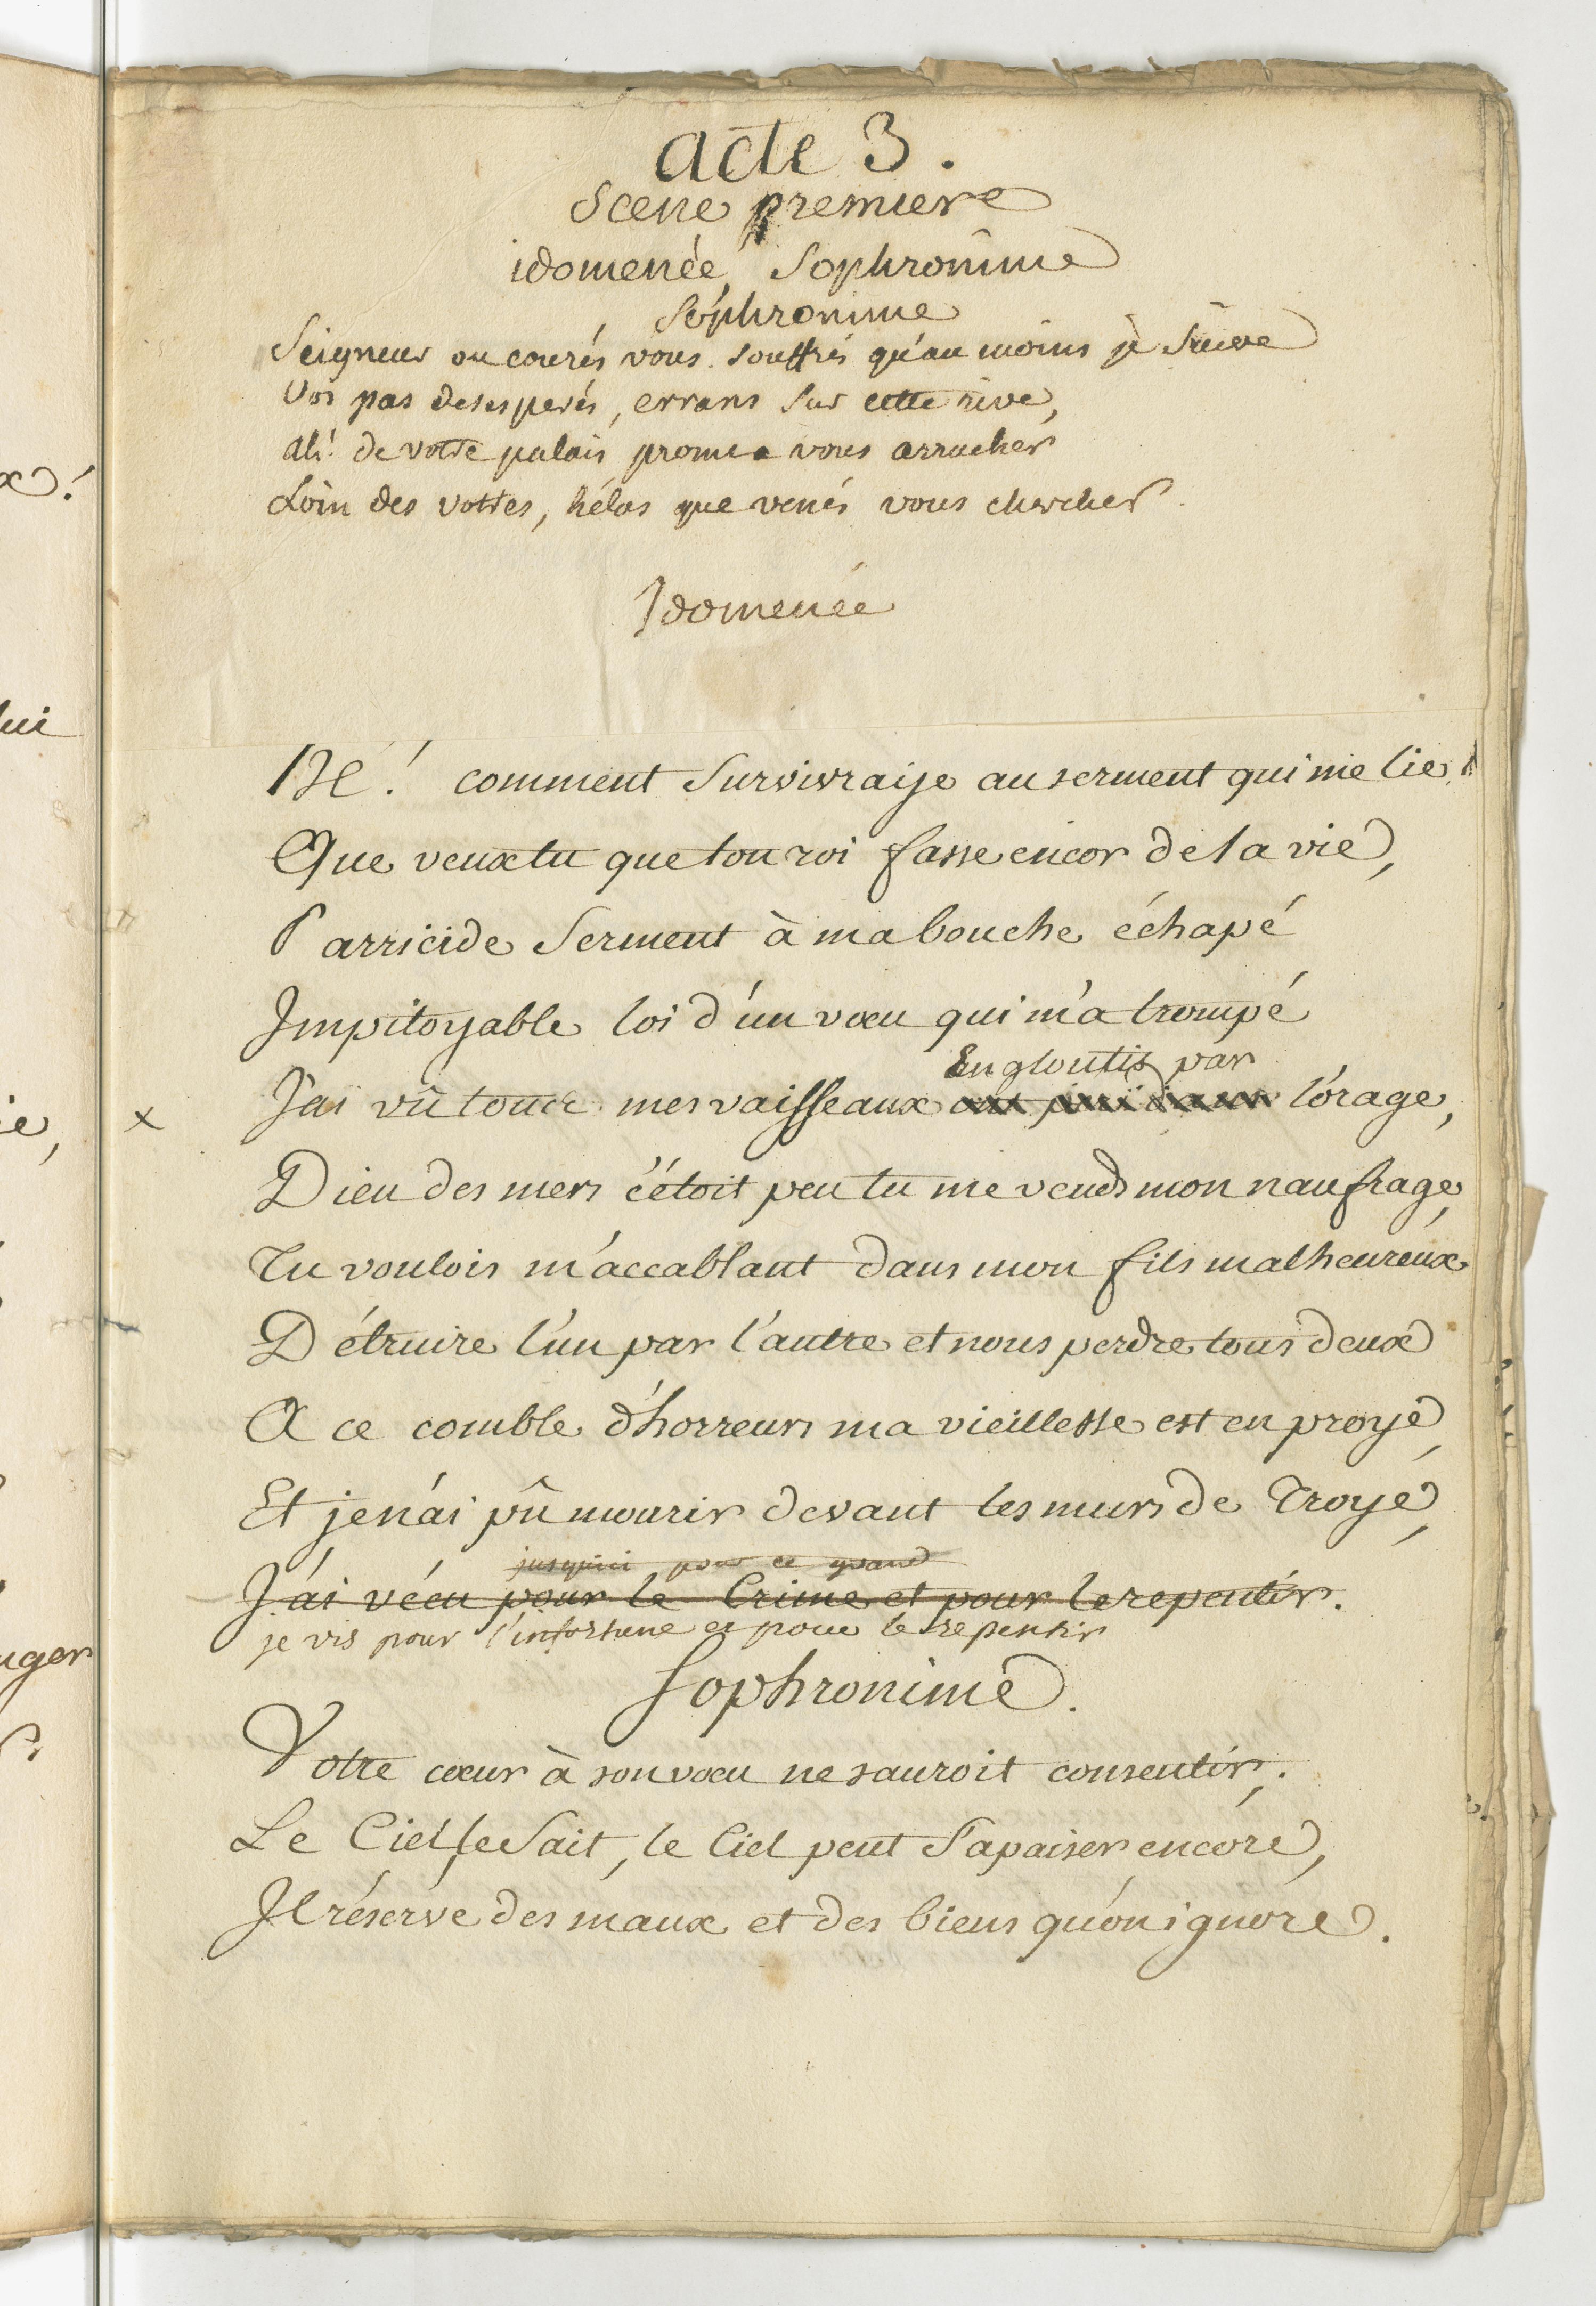 acte 3.
Scene premiere
idomenée, Sophronime
Sophronime
Seigneur ou courés vous. souffrés qu'au moins je suive
Vos pas desesperés, errans sur cette rive,
ah! de votre palais prompt a vous arracher
Loin des votres, hélas que venés vous chercher.
Idomenée
Hé! comment survivraije au serment qui me lie,
Que veux tu que ton roi fasse encor de la vie,
Parricide serment à ma bouche échapé
Impitoyable loi d'un vœu qui m'a trompé
Engloutis par
x J'ai vû tous mes vaisseaux l'orage,
Dieu des mers c'étoit peu tu me vends mon naufrage,
Tu voulois m'accablant dans mon fils malheureux
Détruire l'un par l'autre et nous perdre tous deux
A ce comble d'horreurs ma vieillesse est en proye,
Et je n'ai pû mourir devant les murs de Troye,
jusqu'ici pour ce grand
J'ai vécu pour le Crime et pour le repentir.
je vis pour l'infortune et pour le repentir
Sophronime.
Votre cœur à son vœu ne sauroit consentir;
Le Ciel le sait, le Ciel peut s'apaiser encore,
Il réserve des maux et des biens qu'on ignore.